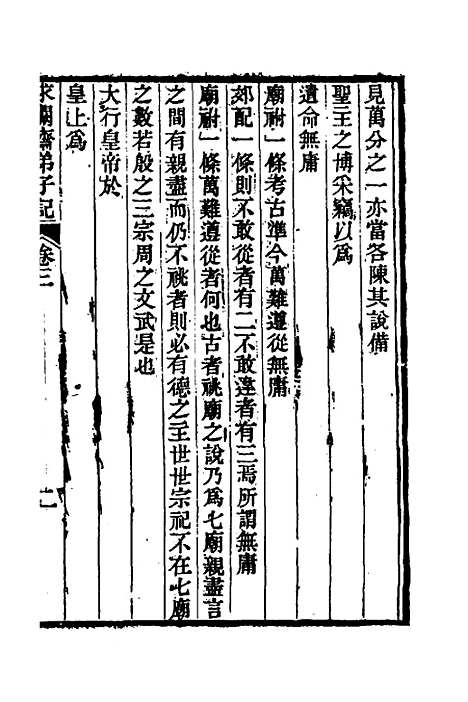 見萬分之一亦當各陳其說備
聖主之博采竊以爲
遺命無庸
廟祔一條考古準今萬難遵從無庸
郊配一條則不敢從者有二不敢違者有三焉所謂無庸
廟祔一條萬難遵從者何也古者祧廟之說乃爲七廟親盡言
之間有親盡而仍不祧者則必有德之主世世宗祀不在七廟
之數若殷之三宗周之文武是也
大行皇帝於
皇上爲
求闕齋弟子記
卷三